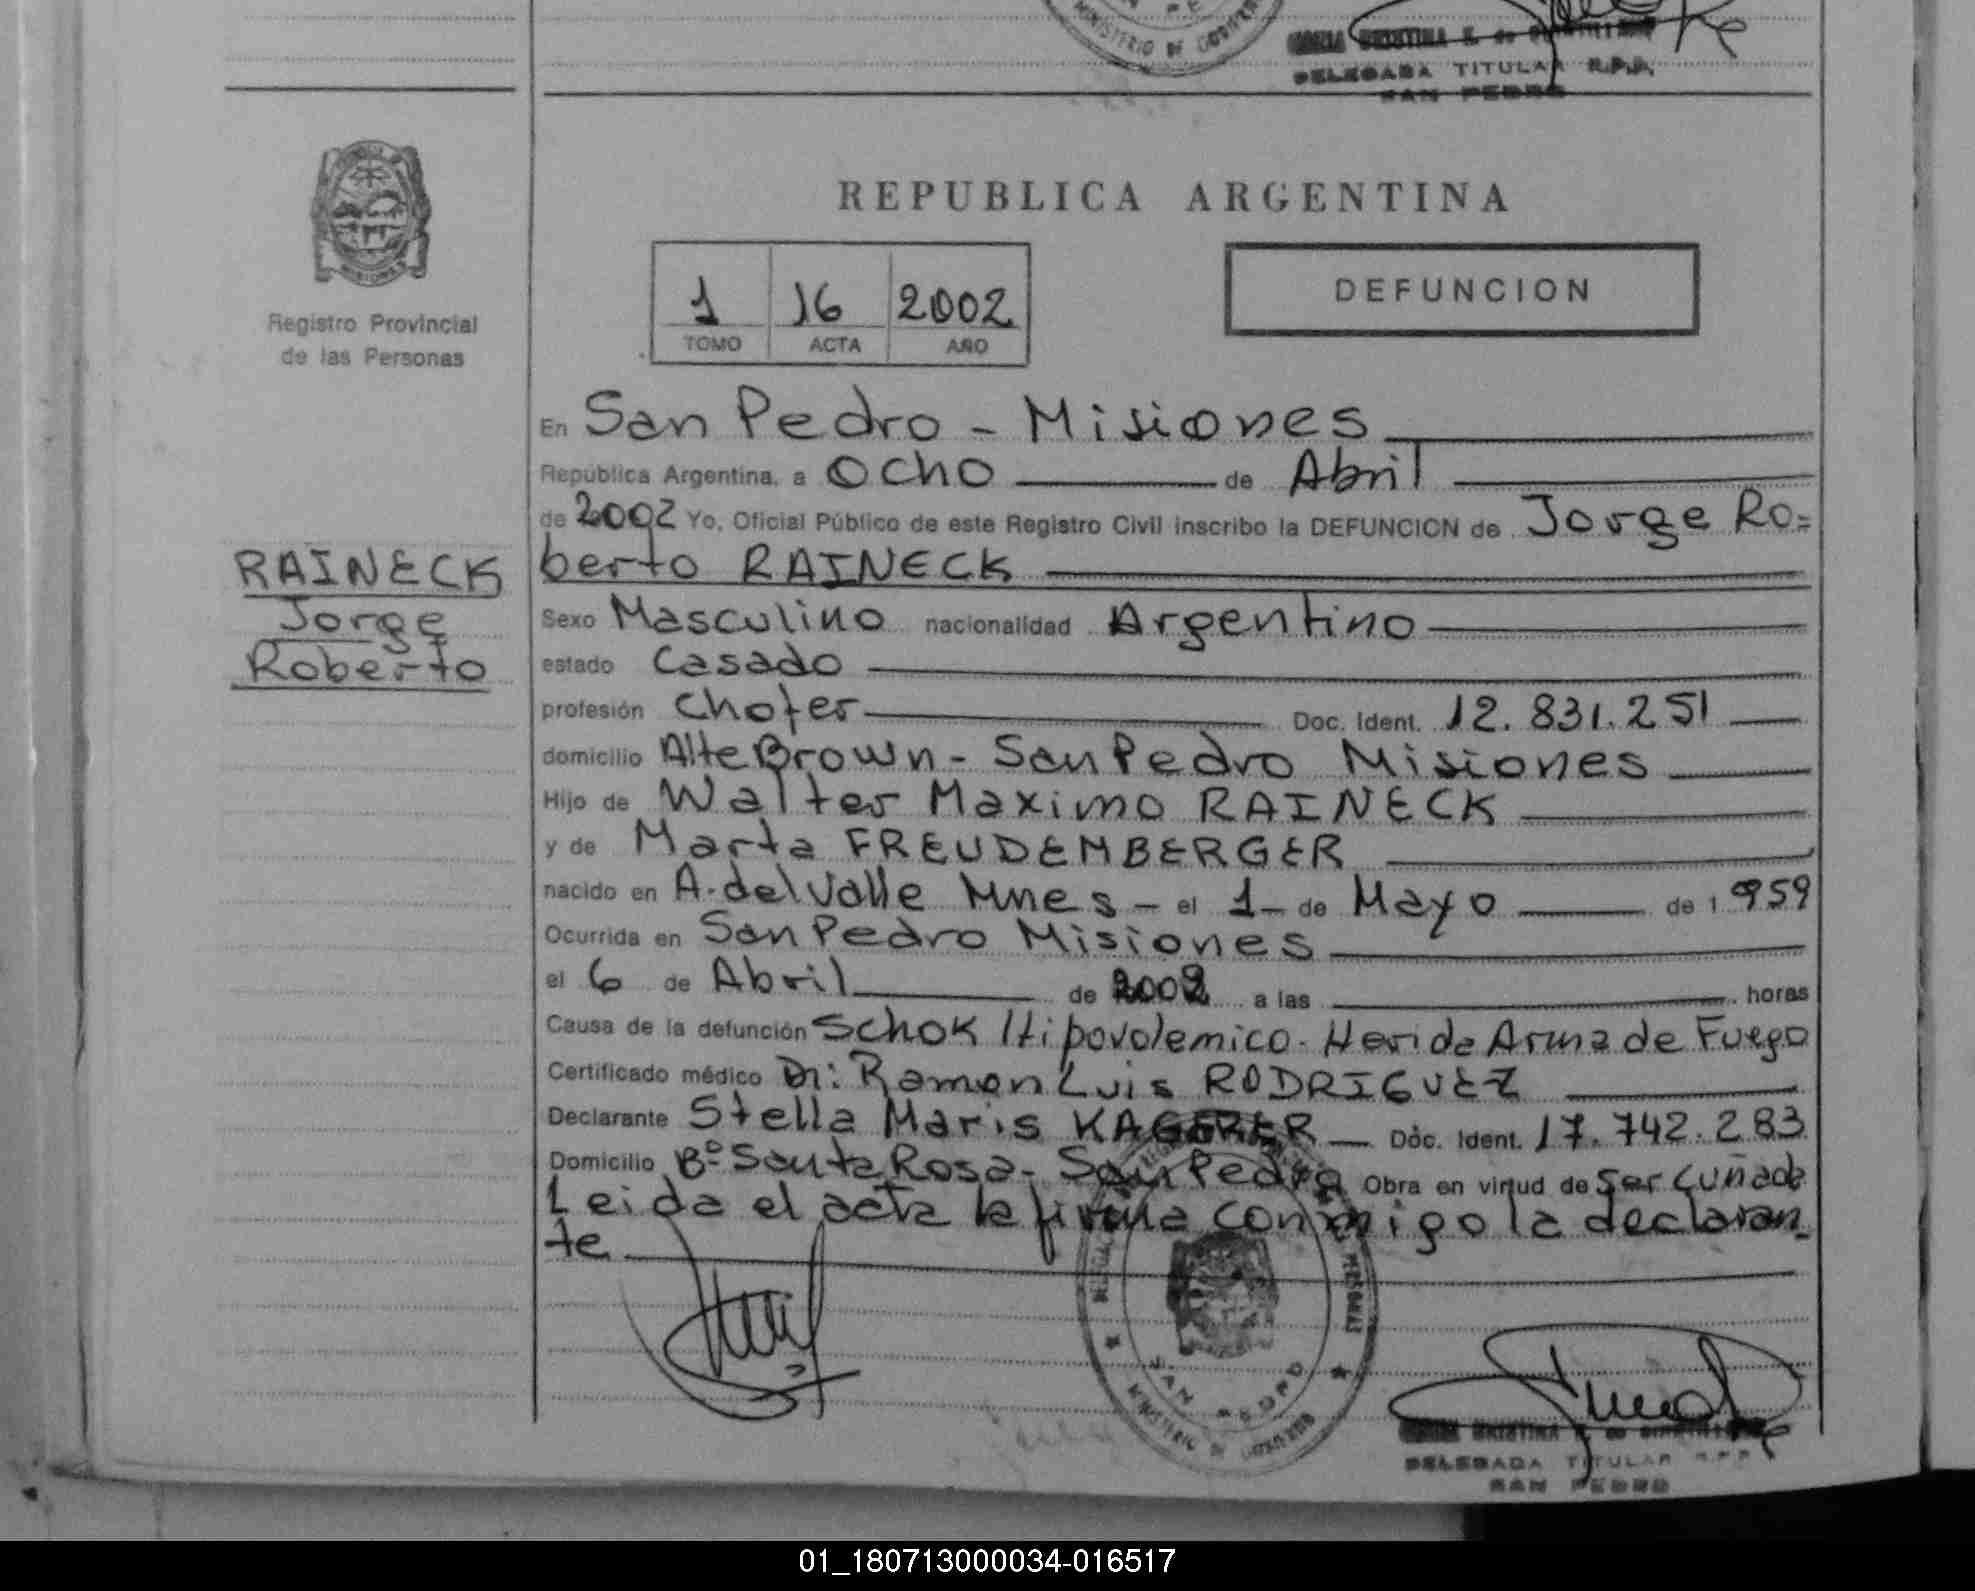 MINISTERIO DE GOBIERNO
DELEGADA TITULAR R.P.P.
SAN PEDRO
MISIONES
Registro Provincial
de las Personas
REPUBLICA ARGENTINA
1 16 2002
TOMO ACTA AÑO
DEFUNCION
En San Pedro - Misiones
República Argentina, a Ocho de Abril
de 2002 Yo, Oficial Público de este Registro Civil inscribo la DEFUNCION de Jorge Ro=
berto RAINECK
RAINECK
Jorge
Roberto
Sexo Masculino nacionalidad Argentino
estado Casado
profesión Chofer Doc. Ident. 12.831.251
domicilio Alte Brown - San Pedro Misiones
Hijo de Walter Maximo RAINECK
y de Marta FREUDEMBERGER
nacido en A. del Valle Mnes - el 1 - de Mayo de 1 959
Ocurrida en San Pedro Misiones
el 6 de Abril de 2002 a las horas
Causa de la defunción Schok Hipovolemico. Herida Arma de Fuego
Certificado médico Dr: Ramon Luis RODRIGUEZ
Declarante Stella Maris KAGERER Doc. Ident. 17.742.283
Domicilio Bº Santa Rosa - San Pedro Obra en virtud de ser cuñada
Leida el acta la firma conmigo la declaran
te
SAN PEDRO
MINISTERIO DE GOBIERNO
DELEGADA TITULAR R.P.P.
SAN PEDRO
01_180713000034-016517